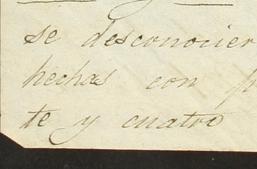 se desconocier
hechas con p
te y cuatro